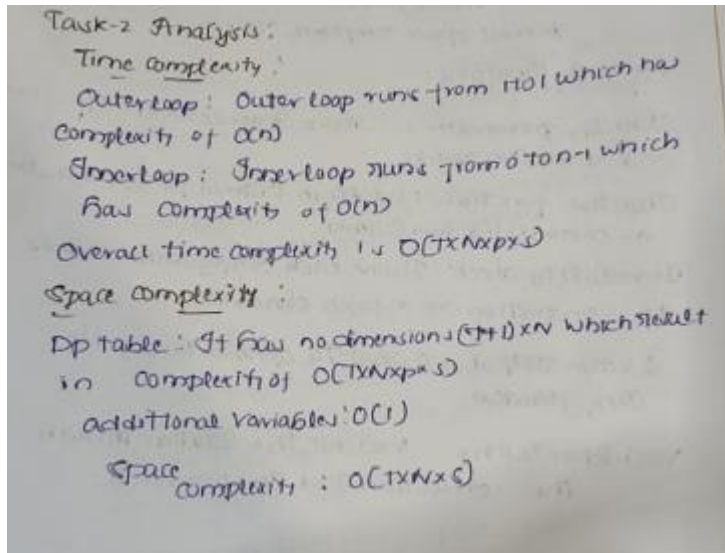 Task-2 Analysis:
Time complexity:
Outerloop: Outer loop runs from which has
complexity of O(n)
Innerloop: Innerloop runs from 0 to n-1 which
has complexity of O(n)
Overall time complexity is O(TxNxpxs)
Space complexity:
Dp table: It has no dimensions (T+1)xN which result
in complexity of O(TxNxpxs)
additional variables: O(1)
Space
complexity : O(TxNxS)